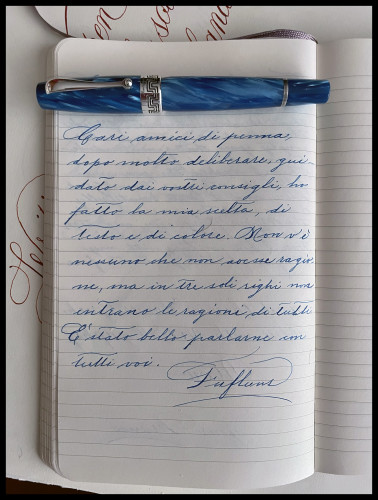 Cari amici, di penna,
dopo molto deliberare, gui-
dato dai vostri consigli, ho
fatto la mia scelta, di
testo e di colore. Non v'è
nessuno che non, avesse ragio-
ne, ma in tre soli righi non
entrano le ragioni, di tutti
E' stato bello parlarne con
tutti voi.